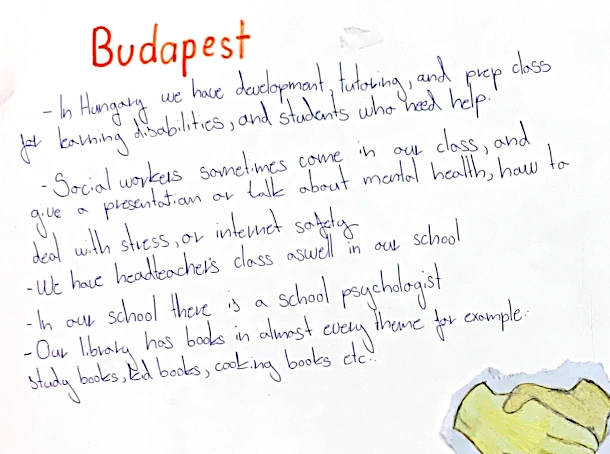 Budapest
- In Hungary we have development, tutoring, and prep class
for learning disabilities, and students who need help.
- Social workers sometimes come in our class, and
give a presentation or talk about mental health, how to
deal with stress, or internet safety
- We have headteacher's class aswell in our school
- In our school there is a school psychologist
- Our library has books in almost every theme for example:
study books, kid books, cooking books etc..